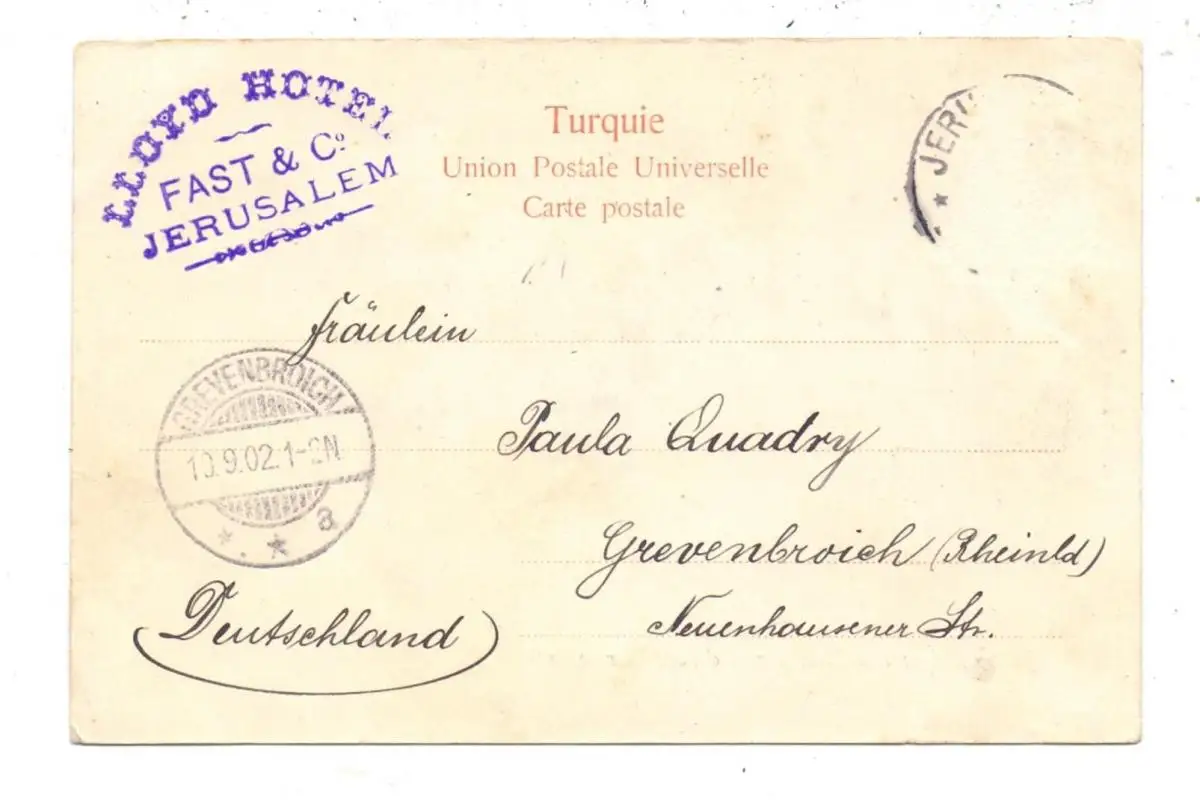 LLOYD HOTEL
FAST & Cº
JERUSALEM
Turquie
Union Postale Universelle
Carte postale
JERU
Fräulein
GREVENBROICH
10.9.02.1-2N
* * a
Paula Quadry
Grevenbroich (Rheinld)
Neuenhausener Str.
(Deutschland)